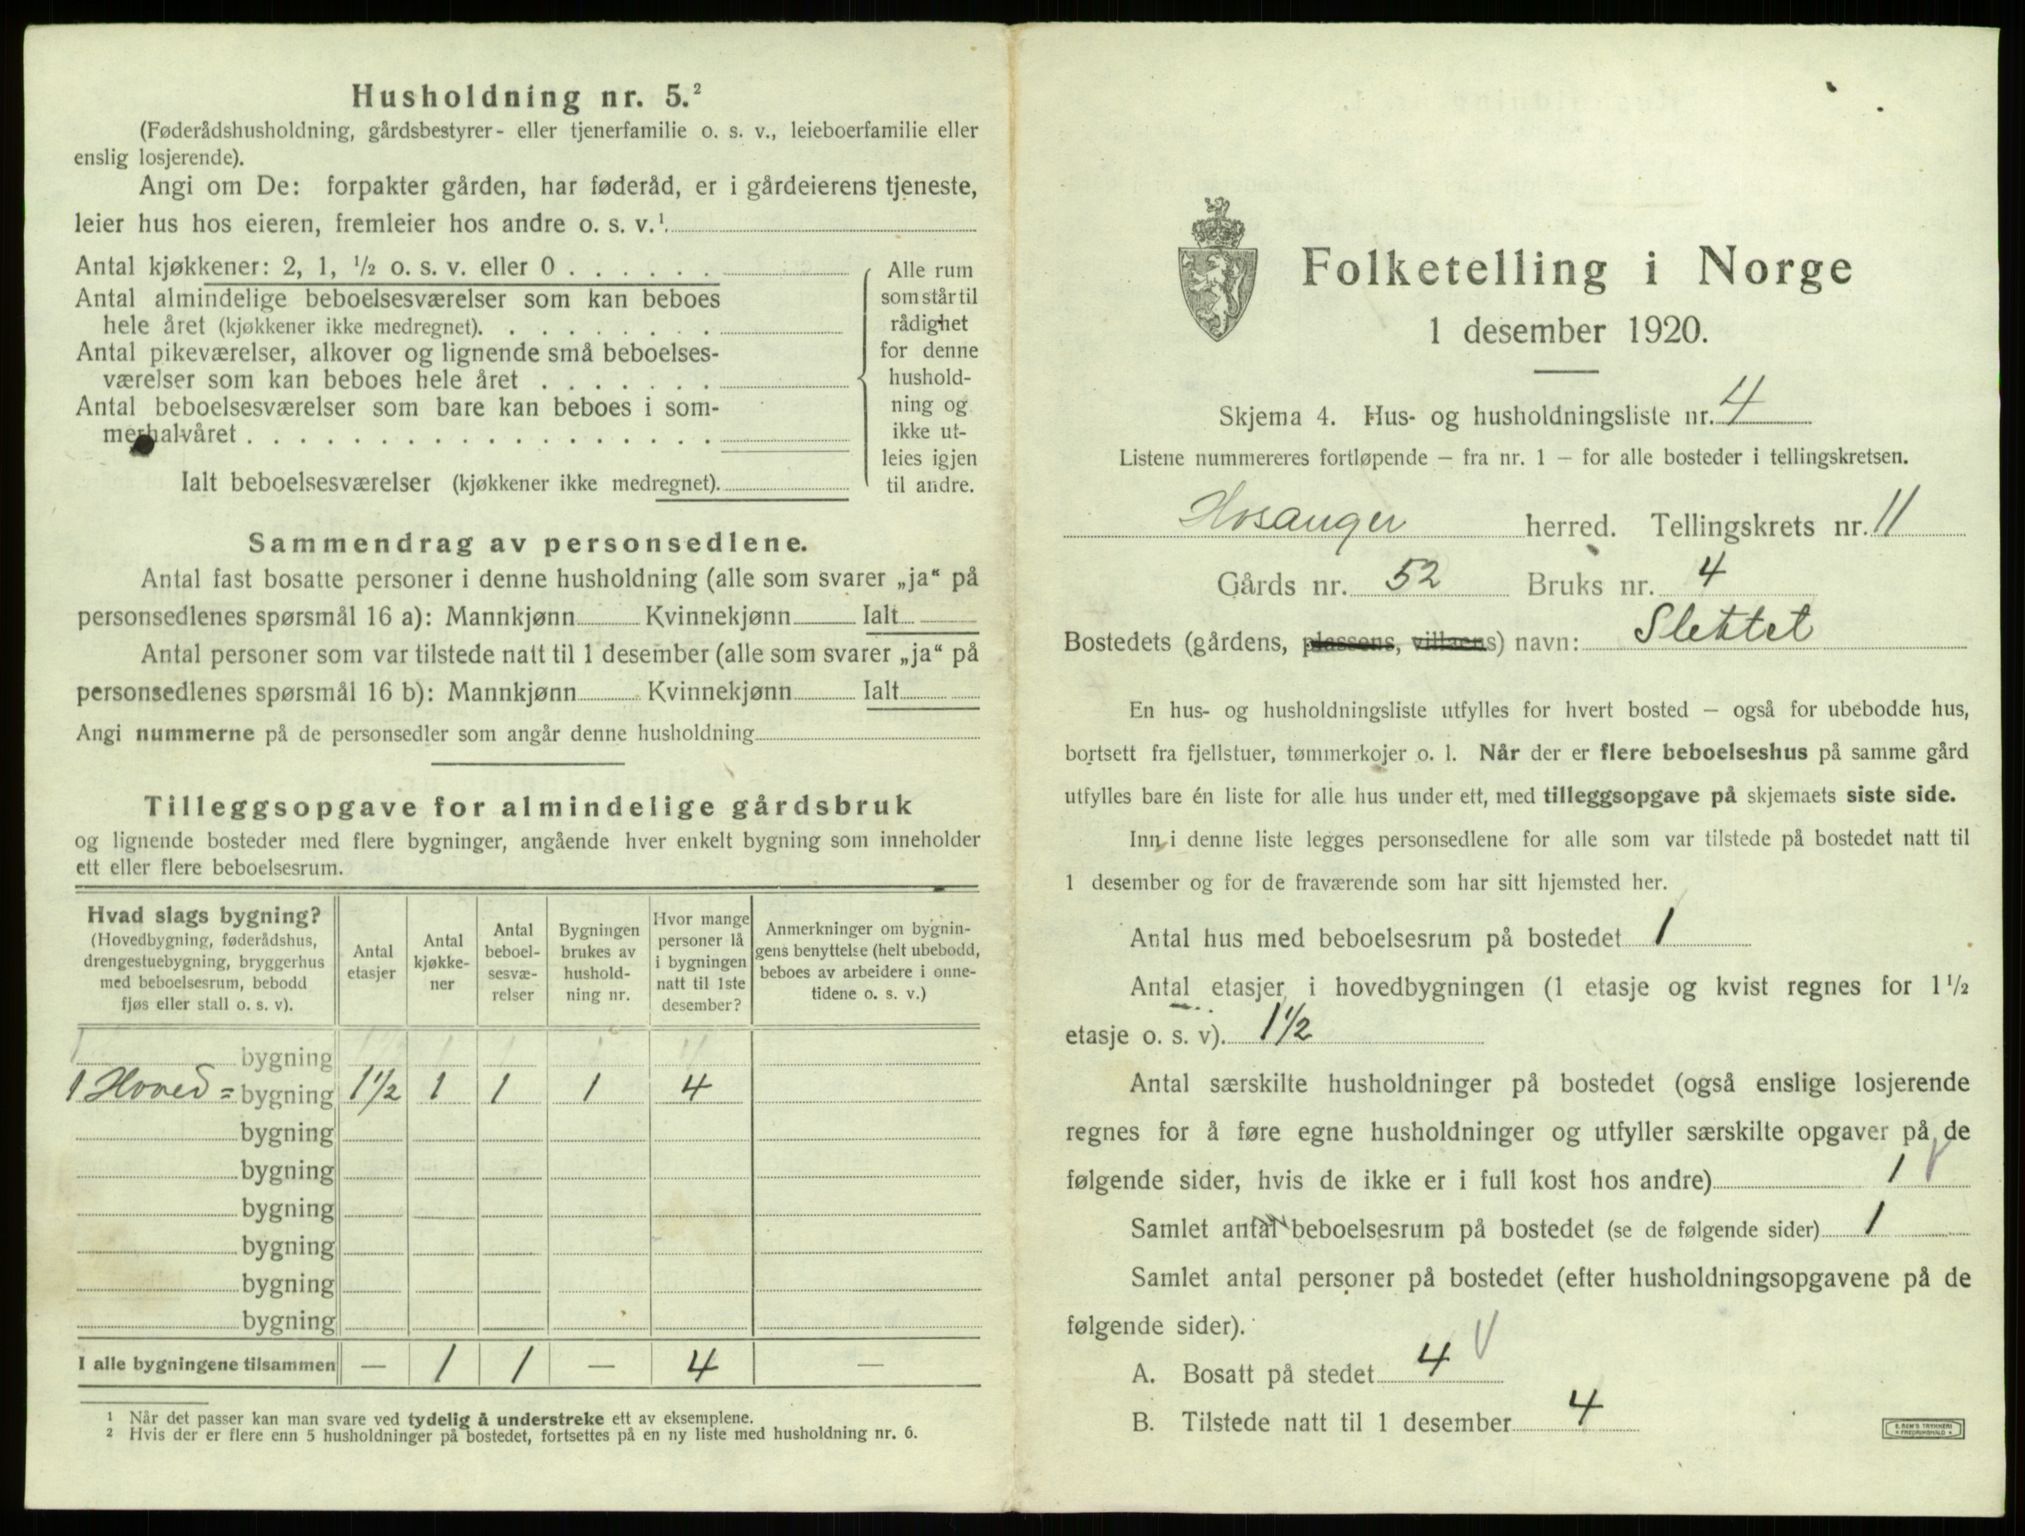 Husholdning nr. 5.²
(Føderådshusholdning, gårdsbestyrer- eller tjenerfamilie o. s. v., leieboerfamilie eller
enslig losjerende).
Angi om De: forpakter gården, har føderåd, er i gårdeierens tjeneste,
leier hus hos eieren, fremleier hos andre o. s. v.¹
Antal kjøkkener: 2, 1, ½ o. s. v. eller 0
Antal almindelige beboelsesværelser som kan beboes
hele året (kjøkkener ikke medregnet).
Antal pikeværelser, alkover og lignende små beboelses-
værelser som kan beboes hele året
Antal beboelsesværelser som bare kan beboes i som-
merhalvåret
Ialt beboelsesværelser (kjøkkener ikke medregnet).
Alle rum
som står til
rådighet
for denne
hushold-
ning og
ikke ut-
leies igjen
til andre.
Sammendrag av personsedlene.
Antal fast bosatte personer i denne husholdning (alle som svarer „ja“ på
personsedlenes spørsmål 16 a): Mannkjønn Kvinnekjønn Ialt
Antal personer som var tilstede natt til 1 desember (alle som svarer „ja“ på
personsedlenes spørsmål 16 b): Mannkjønn Kvinnekjønn Ialt
Angi nummerne på de personsedler som angår denne husholdning
Tilleggsopgave for almindelige gårdsbruk
og lignende bosteder med flere bygninger, angående hver enkelt bygning som inneholder
ett eller flere beboelsesrum.
Hvad slags bygning?
(Hovedbygning, føderådshus,
drengestuebygning, bryggerhus
med beboelsesrum, bebodd
fjøs eller stall o. s. v).
Antal
etasjer
Antal
kjøkke-
ner
Antal
beboel-
sesvæ-
relser
Bygningen
brukes av
hushold-
ning nr.
Hvor mange
personer lå
i bygningen
natt til 1ste
desember?
Anmerkninger om bygnin-
gens benyttelse (helt ubebodd,
beboes av arbeidere i onne-
tidene o. s. v.)
bygning
1 Hoved = bygning 1½ 1 1 1 4
bygning
bygning
bygning
bygning
bygning
bygning
I alle bygningene tilsammen — 1 1 — 4 —
¹ Når det passer kan man svare ved tydelig å understreke ett av eksemplene.
² Hvis der er flere enn 5 husholdninger på bostedet, fortsettes på en ny liste med husholdning nr. 6.
Folketelling i Norge
1 desember 1920.
Skjema 4. Hus- og husholdningsliste nr. 4
Listene nummereres fortløpende – fra nr. 1 – for alle bosteder i tellingskretsen.
Hosanger herred. Tellingskrets nr. 11
Gårds nr. 52 Bruks nr. 4
Bostedets (gårdens, plassens, villaens) navn: Slettet
En hus- og husholdningsliste utfylles for hvert bosted – også for ubebodde hus,
bortsett fra fjellstuer, tømmerkojer o. l. Når der er flere beboelseshus på samme gård
utfylles bare én liste for alle hus under ett, med tilleggsopgave på skjemaets siste side.
Inn i denne liste legges personsedlene for alle som var tilstede på bostedet natt til
1 desember og for de fraværende som har sitt hjemsted her.
Antal hus med beboelsesrum på bostedet 1
Antal etasjer i hovedbygningen (1 etasje og kvist regnes for 1½
etasje o. s. v). 1½
Antal særskilte husholdninger på bostedet (også enslige losjerende
regnes for å føre egne husholdninger og utfyller særskilte opgaver på de
følgende sider, hvis de ikke er i full kost hos andre) 1
Samlet antal beboelsesrum på bostedet (se de følgende sider) 1
Samlet antal personer på bostedet (efter husholdningsopgavene på de
følgende sider).
A. Bosatt på stedet 4
B. Tilstede natt til 1 desember 4